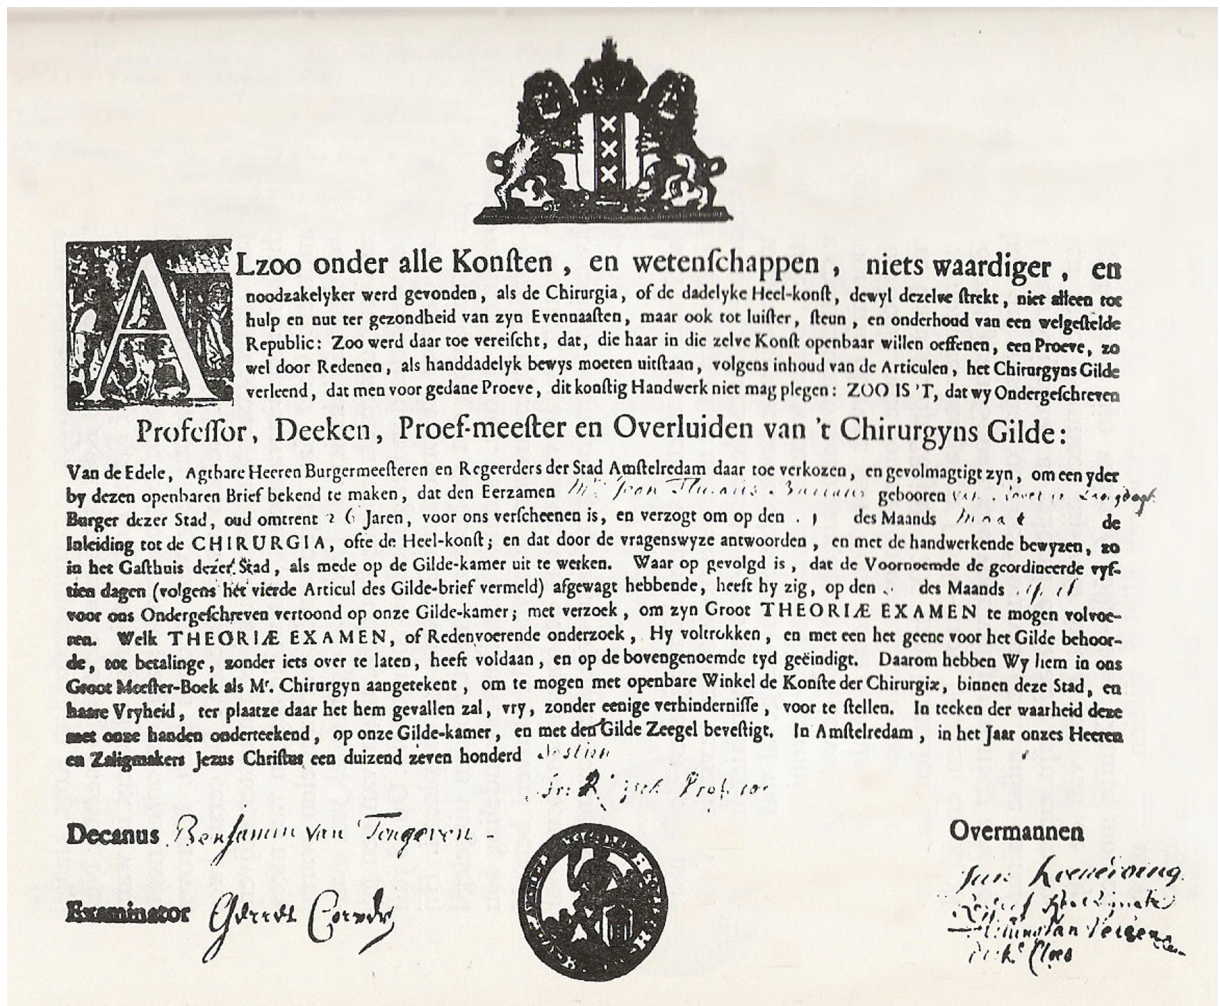 ALzoo onder alle Konſten, en wetenſchappen, niets waardiger, en
noodzakelyker werd gevonden, als de Chirurgia, of de dadelyke Heel-konſt, dewyl dezelve ſtrekt, niet alleen tot
hulp en nut ter gezondheid van zyn Evennaaſten, maar ook tot luiſter, ſteun, en onderhoud van een welgeſtelde
Republic: Zoo werd daar toe vereiſcht, dat, die haar in die zelve Konſt openbaar willen oeffenen, een Proeve, zo
wel door Redenen, als handdadelyk bewys moeten uitſtaan, volgens inhoud van de Articulen, het Chirurgyns Gilde
verleend, dat men voor gedane Proeve, dit konſtig Handwerk niet mag plegen: ZOO IS 'T, dat wy Ondergeſchreven
Profeſſor, Deeken, Proef-meeſter en Overluiden van 't Chirurgyns Gilde:
Van de Edele, Agtbare Heeren Burgermeeſteren en Regeerders der Stad Amſtelredam daar toe verkozen, en gevolmagtigt zyn, om een yder
by dezen openbaren Brief bekend te maken, dat den Eerzamen Mr Jean gebooren van
Burger dezer Stad, oud omtrent 26 Jaren, voor ons verſcheenen is, en verzogt om op den des Maands de
Inleiding tot de CHIRURGIA, ofte de Heel-konſt; en dat door de vragenswyze antwoorden, en met de handwerkende bewyzen, zo
in het Gaſthuis dezer Stad, als mede op de Gilde-kamer uit te werken. Waar op gevolgd is, dat de Voornoemde de geordineerde vyf-
tien dagen (volgens het vierde Articul des Gilde-brief vermeld) afgewagt hebbende, heeft hy zig, op den des Maands
voor ons Ondergeſchreven vertoond op onze Gilde-kamer; met verzoek, om zyn Groot THEORIÆ EXAMEN te mogen volvoe-
ren. Welk THEORIÆ EXAMEN, of Redenvoerende onderzoek, Hy voltrokken, en met een het geene voor het Gilde behoor-
de, tot betalinge, zonder iets over te laten, heeft voldaan, en op de bovengenoemde tyd geëindigt. Daarom hebben Wy hem in ons
Groot Meeſter-Boek als Mr. Chirurgyn aangetekent, om te mogen met openbare Winkel de Konſte der Chirurgiæ, binnen deze Stad, en
haare Vryheid, ter plaatze daar het hem gevallen zal, vry, zonder eenige verhinderniſſe, voor te ſtellen. In teeken der waarheid deze
met onze handen onderteekend, op onze Gilde-kamer, en met den Gilde Zeegel beveſtigt. In Amſtelredam, in het Jaar onzes Heeren
en Zaligmakers Jezus Chriſtus een duizend zeven honderd
Decanus Benjamin van Tongeren
Overmannen
Examinator Gerret